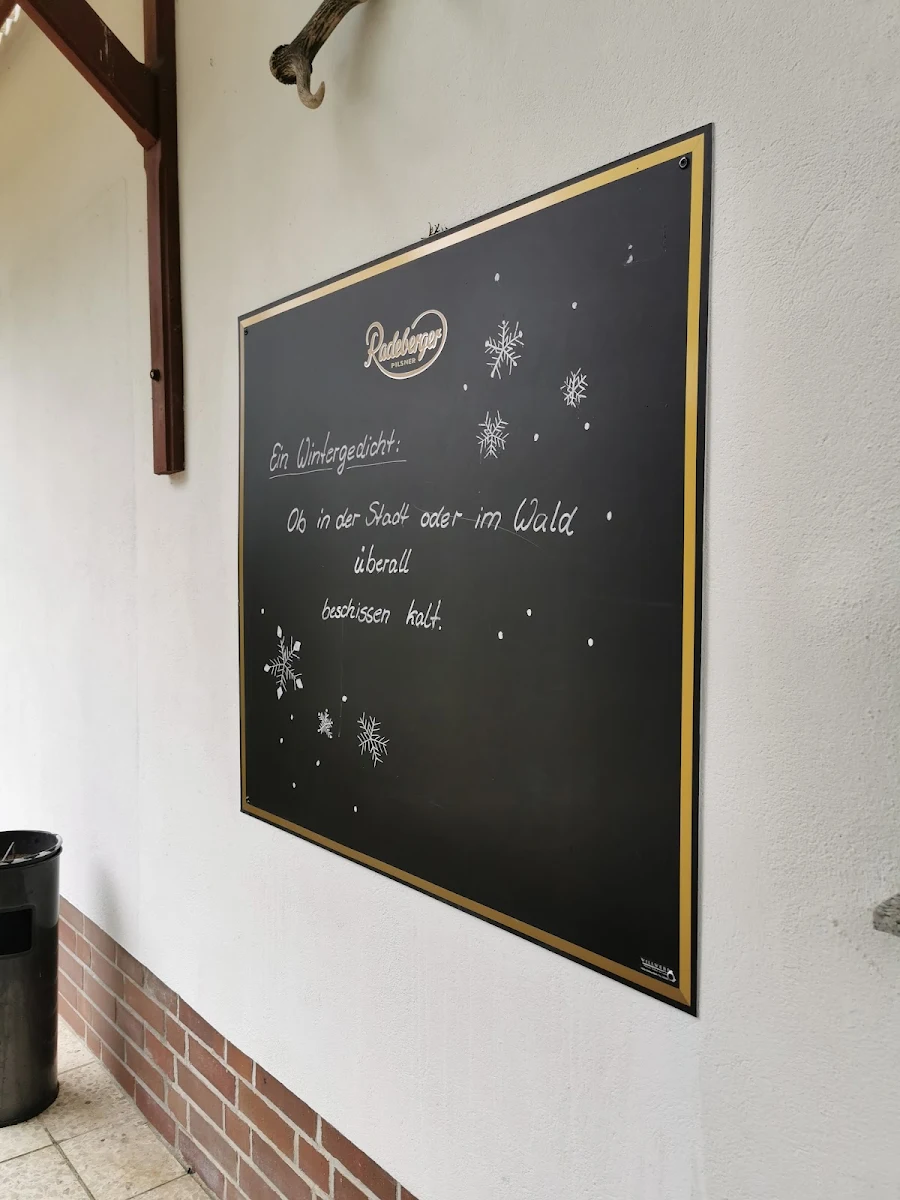 Radeberger
PILSNER
Ein Wintergedicht:
Ob in der Stadt oder im Wald
überall
beschissen kalt.